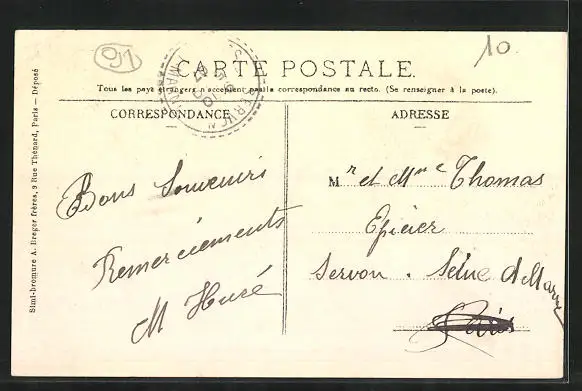 91
10
CARTE POSTALE.
Tous les pays étrangers n'acceptent pas la correspondance au recto. (Se renseigner à la poste).
CORRESPONDANCE
ADRESSE
Bons Souvenirs
Remerciements
M Huré
Mr et Mme Thomas
Epicier
Servon. Seine et Marne
Paris
Simi-bromure A. Breger frères, 9 Rue Thénard, Paris — Déposé
SERVON